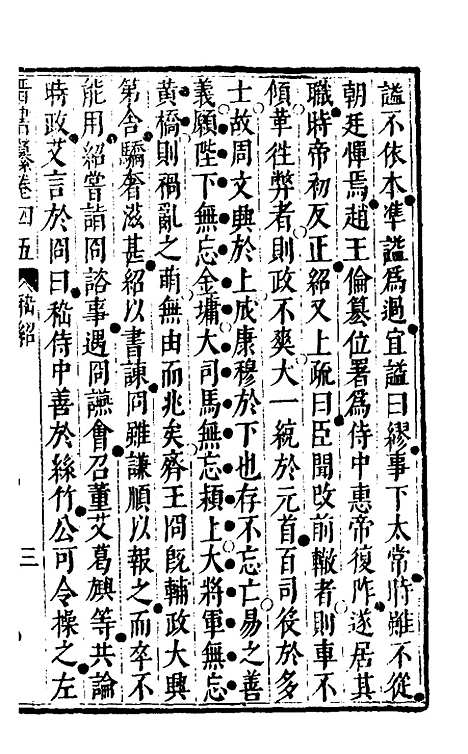 謚不依本準謚爲過宜謚曰繆事下太常時雖不從
朝廷憚焉趙王倫篡位署爲侍中惠帝復阼遂居其
職時帝初反正紹又上疏曰臣聞改前轍者則車不
傾革往弊者則政不爽大一統於元首百司役於多
士故周文興於上成康穆於下也存不忘亡易之善
義願陛下無忘金墉大司馬無忘潁上大將軍無忘
黄橋則禍亂之萌無由而兆矣齊王冏旣輔政大興
第舍驕奢滋甚紹以書諫冏雖謙順以報之而卒不
能用紹嘗詣冏諮事遇冏讌會召董艾葛旟等共論
時政艾言於冏曰嵇侍中善於絲竹公可令操之左
晉書纂卷四五
嵇紹
三